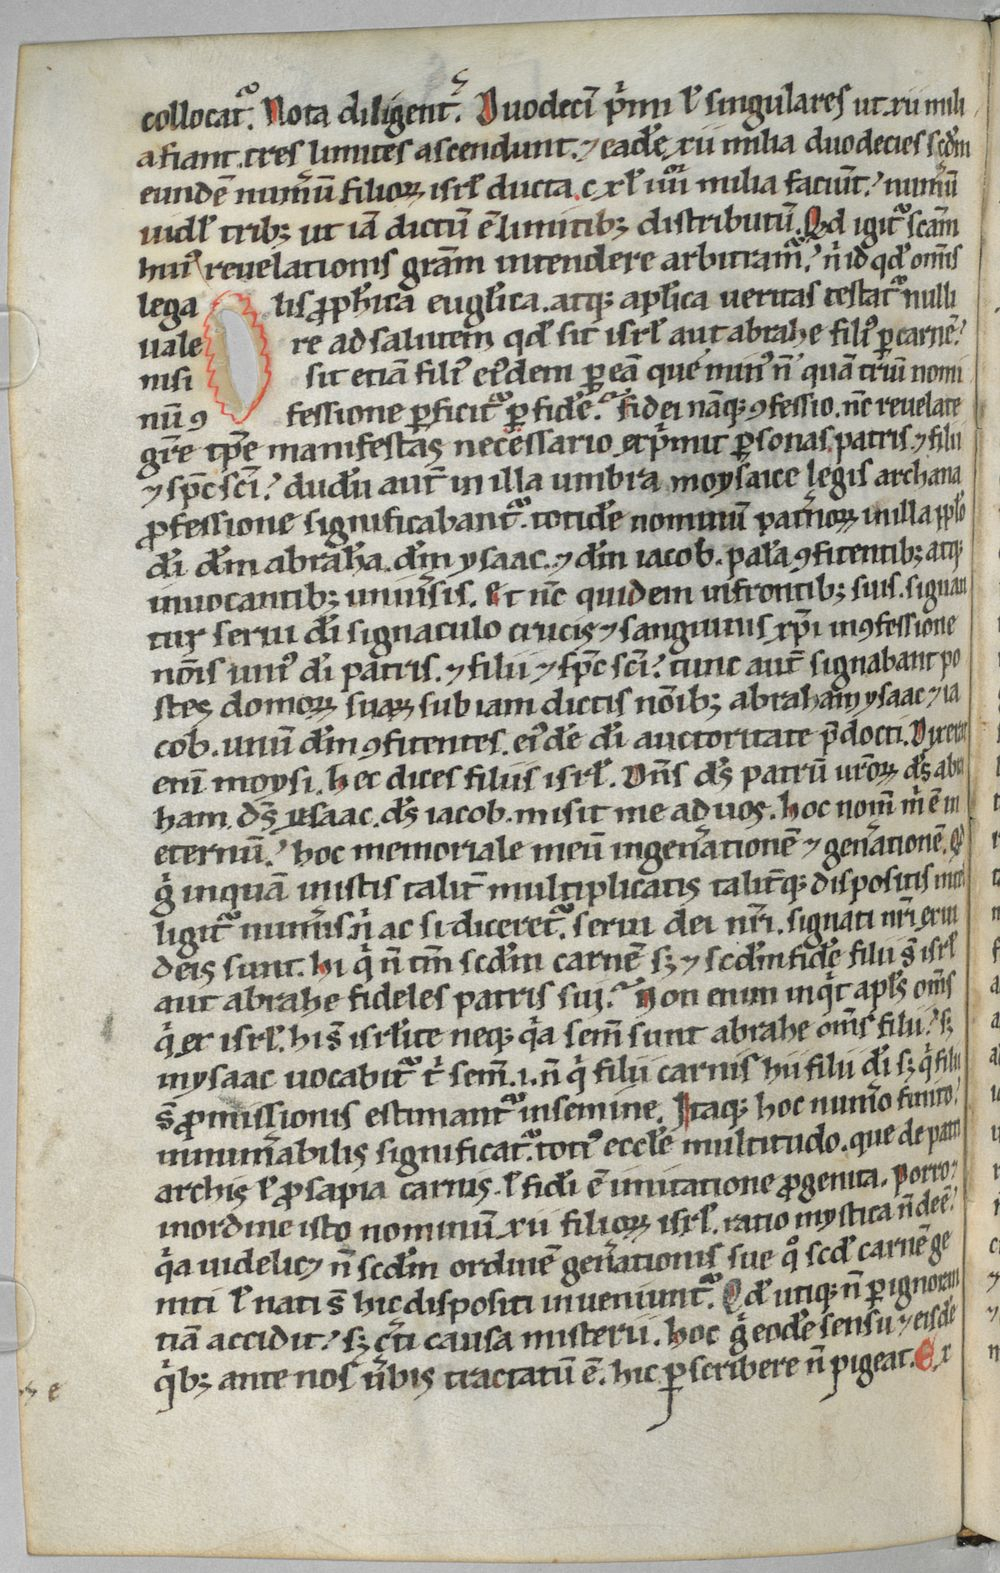 collocat᷑. Nota diligent᷑. Duodeci̅ p᷑mi l̕ singulares ut xii mili
a fiant. tres limites ascendunt. ⁊ eade̅ xii milia duodecies scd̅m
eunde̅ num̅u̅ filioꝝ isrl̕ ducta. c.xl̕ iiiiᵒʳ milia faciu̅t. num̅u̅
uidl̕ tribꝫ ut ia̅ dictu̅ e̅ limitibꝫ distributu̅. Qd igit᷑ sc̅am
huiꝰ reuelationis gr̅am intendere arbitram᷑. n̅ id qd̕ om̅s
lega lis ꝓph̅ica eug̅lica. atqꝫ apl̅ica ueritas testat᷑ nulli
uale re ad salutem qd̕ sit isrl̕ aut abrahe filiꝰ ꝑ carne̅.
nisi sit etia̅ filiꝰ eiꝰdem ꝑ ea̅ que minꝰ n̅ qua̅ triu̅ nomi
nu̅ ꝯ fessione ꝑficit᷑ ꝑ fide̅. Fidei na̅qꝫ ꝯfessio. nc̅ reuelate
gr̅e tp̅e manifestas necessario exp̅mit ꝑsonas patris. ⁊ filii
⁊ sp̅c sc̅i. dudu̅ aut̅ in illa umbra moysaice legis archana
ꝓfessione significabant᷑. totide̅ nominu̅ pat̅noꝝ in illa pp̅lo
d̅i d̅m abrah̅a. d̅m ysaac. ⁊ d̅m iacob. pala̅ ꝯfitentibꝫ atqꝫ
inuocantibꝫ uniu̅sis. Et nc̅ quidem in frontibꝫ suis. signan
tur serui d̅i signaculo crucis ⁊ sanguinis xp̅i in ꝯfessione
no̅is uniꝰ d̅i patris. ⁊ filii ⁊ sp̅c sc̅i. tunc aut̅ signabant po
stes domoꝝ suaꝝ sub iam dictis no̅ibꝫ abraham ysaac ⁊ ia
cob. unu̅ d̅m ꝯfitentes. eiꝰde̅ d̅i auctoritate p̅docti. Dixerat
eni̅ moysi. hec dices filiis isrl̕. Dn̅s d̅s patru̅ ur̅oꝝ d̅s abra
ham. d̅s ysaac. d̅s iacob. misit me ad uos. hoc nom̅ m̅ e̅ in
eternu̅. hoc memoriale meu̅ in gen̅atione̅ ⁊ gen̅atione̅. Qd
g̅ inqua̅ in istis talit̅ multiplicatis talit̅qꝫ dispositis intel
ligit᷑ num̅is n̅ ac si diceret᷑. serui dei nr̅i. signati nr̅i
deis sunt. hi q̅ n̅ tm̅ scd̅m carne̅ sꝫ ⁊ scd̅m fide̅ filii s̅ isrl̕
aut abrahe fideles patris sui. Non enim inq̅t apl̅s om̅s
q̅ ex isrl̕. hi s̅ isrl̅ite neqꝫ q̅a sem̅ sunt abrahe om̅s filii. sꝫ
in ysaac uocabit᷑ t̅ sem̅. i. n̅ q̅ filii carnis hii filii d̅i sꝫ q̅ filii
s̅ ꝓmissionis estimant᷑ in semine. Itaqꝫ hoc num̅o finito.
innum̅abilis significat᷑. totiꝰ eccl̅e multitudo. que de patri
archis l̕ ꝓsapia carnis. l̕ fidi e̅ imitatione ꝓgenita. Porro
in ordine isto nominu̅ xii filioꝝ isrl̕. ratio mystica n̅ dee̅.
q̅a uidelicꝫ n̅ scd̅m ordine̅ gen̅ationis sue qᵒ scd̅ carne̅ ge
niti l̕ nati s̅ hic dispositi inueniunt᷑. Qd̕ utiqꝫ n̅ ꝑ ignoran
tia̅ accidit. sꝫ c̅ti causa misterii. hoc g̅ eode̅ sensu ⁊ eisde̅
q̅bꝫ ante nos u̅bis tractatu̅ e̅. hic ꝑscribere n̅ pigeat. Ex